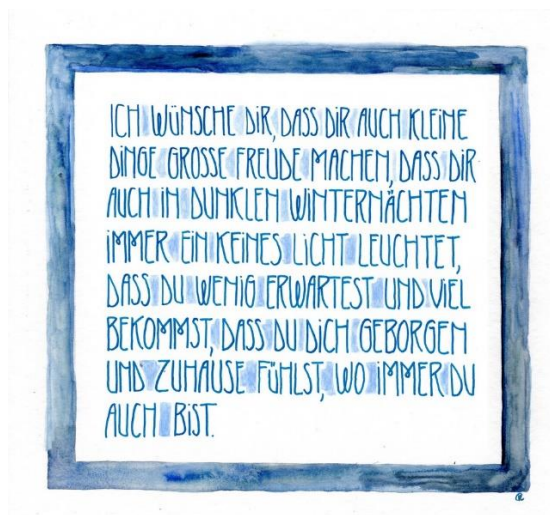 ICH WÜNSCHE DIR, DASS DIR AUCH KLEINE
DINGE GROSSE FREUDE MACHEN, DASS DIR
AUCH IN DUNKLEN WINTERNÄCHTEN
IMMER EIN KEINES LICHT LEUCHTET,
DASS DU WENIG ERWARTEST UND VIEL
BEKOMMST, DASS DU DICH GEBORGEN
UND ZUHAUSE FÜHLST, WO IMMER DU
AUCH BIST.